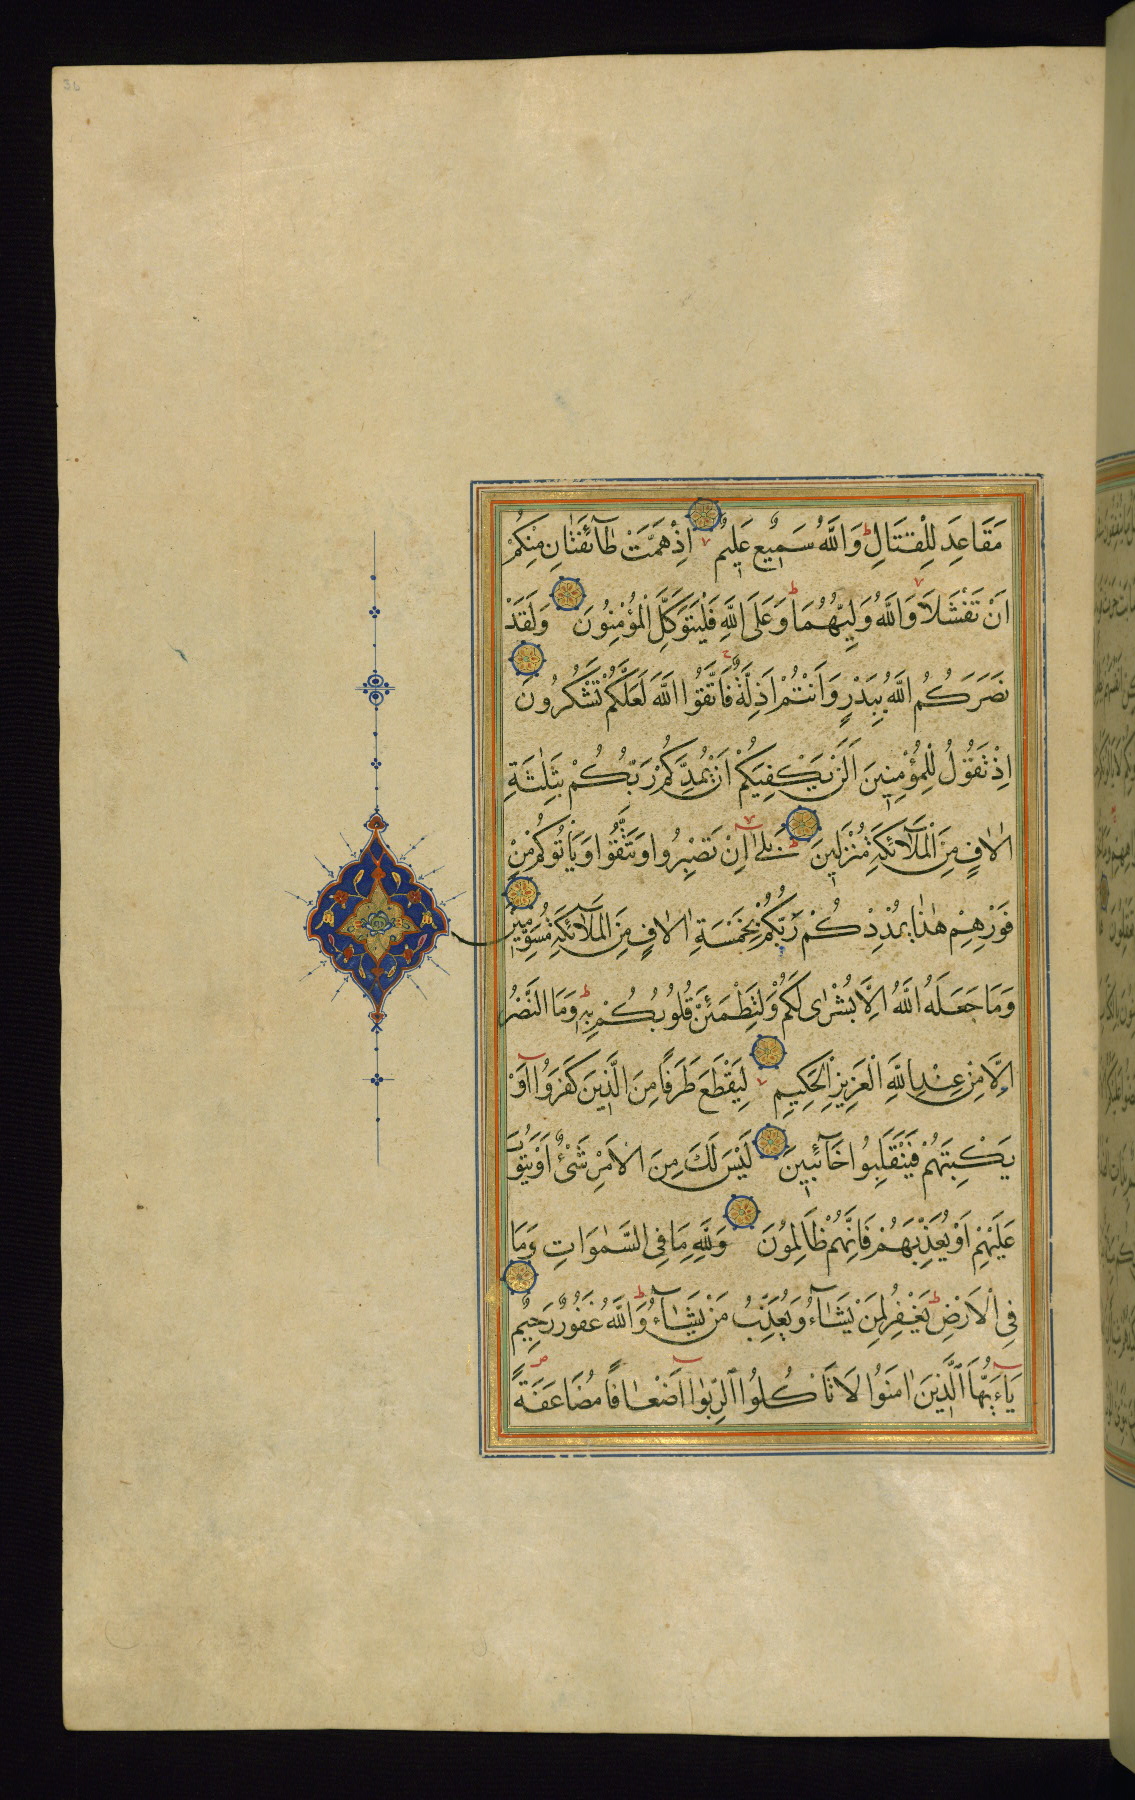 مَقَاعِدَ لِلْقِتَالِ ط وَاللَّهُ سَمِيعٌ عَلِيمٌ ۙ اِذْ هَمَّتْ طَآئِفَتَانِ مِنْكُمْ
اَنْ تَفْشَلَا ۙ وَاللَّهُ وَلِيُّهُمَا ط وَعَلَى اللَّهِ فَلْيَتَوَكَّلِ الْمُؤْمِنُونَ وَلَقَدْ
نَصَرَكُمُ اللَّهُ بِبَدْرٍ وَاَنْتُمْ اَذِلَّةٌ ج فَاتَّقُوا اللَّهَ لَعَلَّكُمْ تَشْكُرُونَ
اِذْ تَقُولُ لِلْمُؤْمِنِينَ اَلَنْ يَكْفِيَكُمْ اَنْ يُمِدَّكُمْ رَبُّكُمْ بِثَلٰثَةِ
اٰلَافٍ مِنَ الْمَلَآئِكَةِ مُنْزَلِينَ ط بَلٰى ۙ اِنْ تَصْبِرُوا وَتَتَّقُوا وَيَأْتُوكُمْ مِنْ
فَوْرِهِمْ هٰذَا يُمْدِدْكُمْ رَبُّكُمْ بِخَمْسَةِ اٰلَافٍ مِنَ الْمَلَآئِكَةِ مُسَوِّمِينَ
وَمَا جَعَلَهُ اللَّهُ اِلَّا بُشْرٰى لَكُمْ وَلِتَطْمَئِنَّ قُلُوبُكُمْ بِهِ ط وَمَا النَّصْرُ
اِلَّا مِنْ عِنْدِ اللَّهِ الْعَزِيزِ الْحَكِيمِ ۙ لِيَقْطَعَ طَرَفًا مِنَ الَّذِينَ كَفَرُوا اَوْ
يَكْبِتَهُمْ فَيَنْقَلِبُوا خَآئِبِينَ لَيْسَ لَكَ مِنَ الْاَمْرِ شَيْءٌ اَوْ يَتُوبَ
عَلَيْهِمْ اَوْ يُعَذِّبَهُمْ فَاِنَّهُمْ ظَالِمُونَ وَلِلَّهِ مَا فِي السَّمٰوَاتِ وَمَا
فِي الْاَرْضِ ط يَغْفِرُ لِمَنْ يَشَآءُ وَيُعَذِّبُ مَنْ يَشَآءُ ط وَاللَّهُ غَفُورٌ رَحِيمٌ
يَآ اَيُّهَا الَّذِينَ اٰمَنُوا لَا تَأْكُلُوا الرِّبٰوا اَضْعَافًا مُضَاعَفَةً